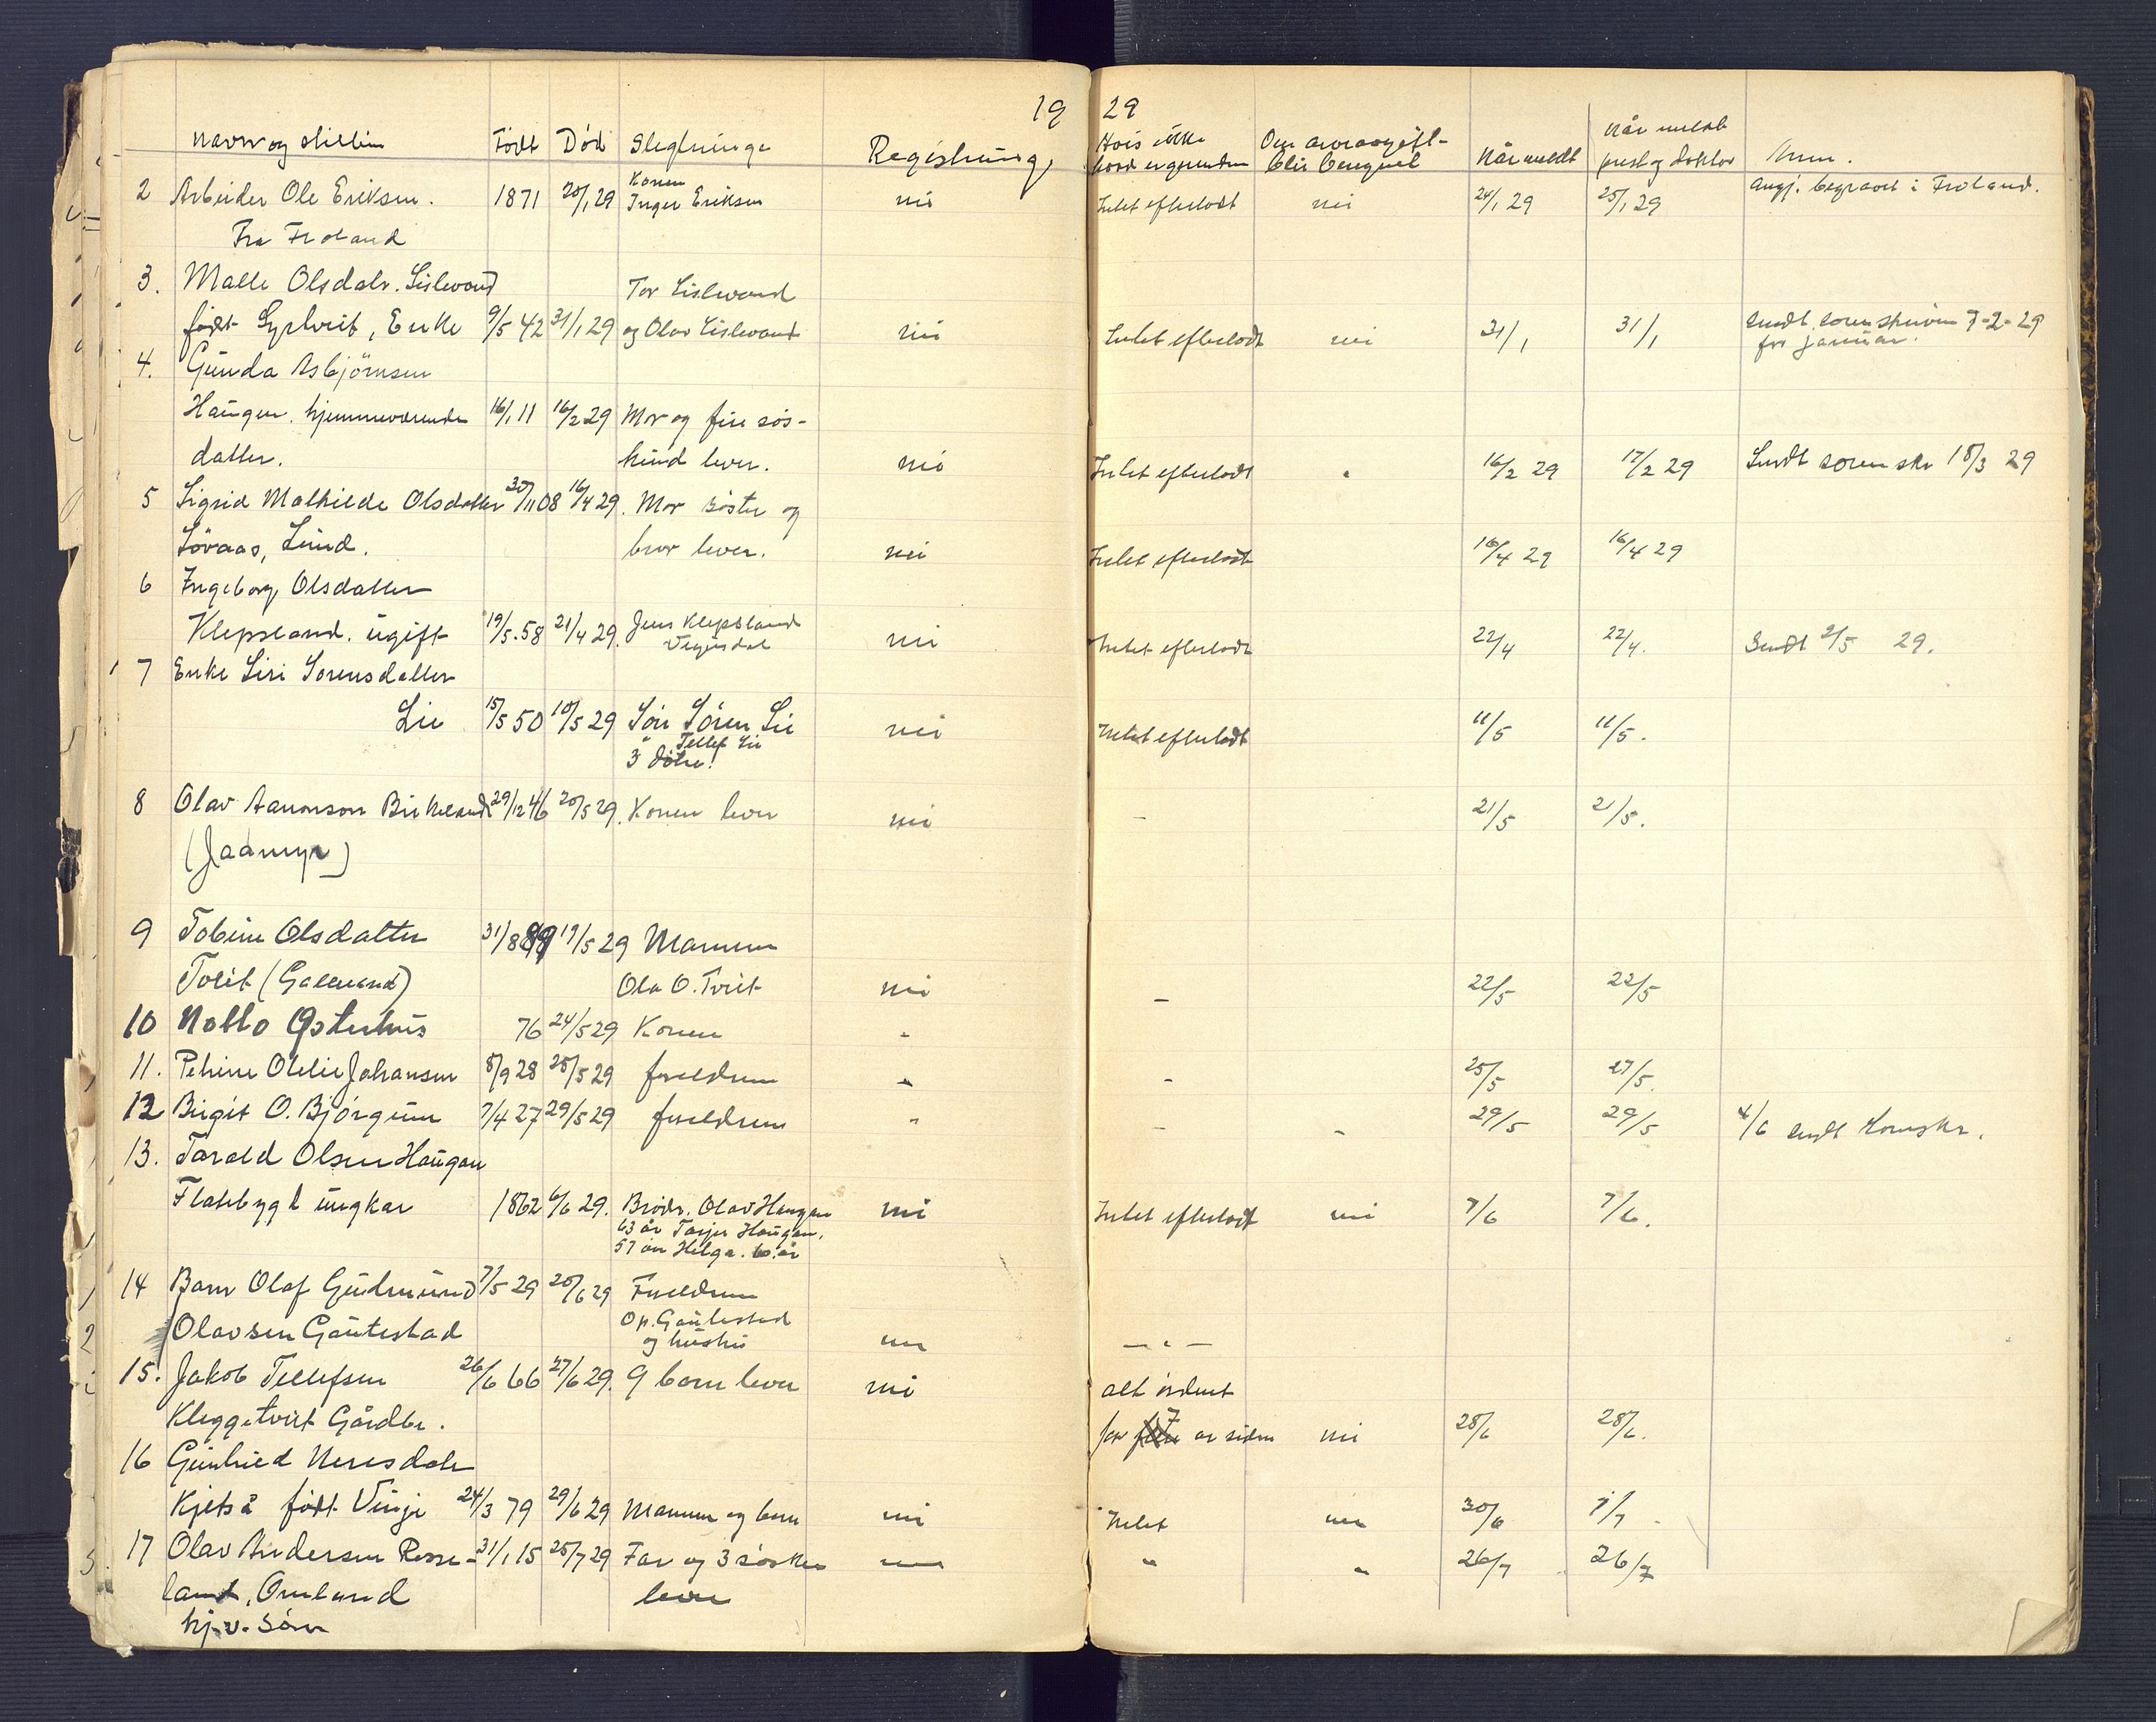 19 29
Navn og stilling Født Død Slegtninge Registrering Hvis ikke Om arveavgift Når meldt
bord er grunden blir beregnet Når meldt prest og doktor Anm.
2 Arbeider Ole Eriksen. 1871 20/1 29 Konen Inger Eriksen nei Intet efterlodt nei 24/1 29 25/1 29 Angj. begravet i Froland.
Fra Froland
3. Malle Olsdatr. Lislevand Tor Lislevand
født Syrtveit, Enke 9/5 42 31/1 29 og Olav Lislevand nei Intet efterlodt nei 31/1 31/1 Sendt sorenskriven 7-2-29
for januar.
4. Gunda Asbjörnsen
Haugen. hjemmeværende 16/1 11 16/2 29 Mor og fire søs-
datter. kind lever. nei Intet efterlodt " 16/2 29 17/2 29 Sendt sorenskr 18/3 29
5 Sigrid Mathilde Olsdatter 30/11 08 16/4 29. Mor søster og
Lövaas, Lund. bror lever. nei Intet efterlodt 16/4 29 16/4 29
6 Ingeborg Olsdatter
Klepsland. ugift 19/5.58 21/4 29. Jens Klepsland
Vegusdal nei Intet efterlodt 22/4 22/4. Sendt 2/5 29.
7 Enke Siri Sorensdatter
Lie 15/5 50 10/5 29 Sön Sören Lie nei Intet efterlodt 11/5 11/5.
" Tellef Lie
3 døtre!
8 Olav Aanonson Birkeland 29/12 46 20/5 29. Konen lever nei - 21/5 21/5.
(Jaamyr)
9 Tobine Olsdatter 31/8 89 19/5 29 Mannen
Tveit (Galteland) Ola O. Tveit nei - 22/5 22/5
10 Nollo Østerhus 76 24/5 29 Konen "
11. Petrine Otelie Johansen 8/9 28 25/5 29 foreldrene " - 25/5 27/5.
12 Birgit O. Bjórgum 7/4 27 29/5 29 foreldrene " - - 29/5 29/5 4/6 sendt sorenskr.
13. Tarald Olsen Haugan
Flatebygd ungkar 1862 6/6 29. Brödr. Olav Haugan nei Intet efterlodt nei 7/6 7/6.
63 år Tarjei Haugan.
57 år Helga. 60 år
14 Barn Olaf Gudmund 7/5 29 20/6 29 Foreldrene
Olavsen Gautestad Op. Gautestad
og hustru nei - " -
15. Jakob Tellefsen 26/6 66 27/6 29. 9 barn lever nei alt ordnet
Kleggetveit Gårdbr. for 7 år siden nei 28/6 28/6.
16 Gunhild Neresdatr
Kjetså født Vinje 24/3 79 29/6 29 Mannen og barn nei Intet nei 30/6 1/7
17 Olav Andersen Rosse- 31/1 15 25/7 29 Far og 3 søsken nei " " 26/7 26/7
land, Omland lever
hj.v. Sönn